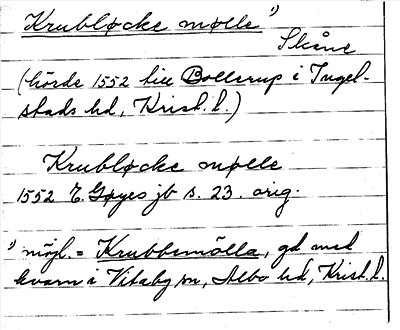 Krubløcke mølle 1)
Skåne
(hörde 1552 till Bollerup i Ingel-
stads hd, Krist. l.)
Krubløcke mølle
1552 E. Gøyes jb s. 23. orig.
1) möjl. = Krubbemölla, gd med
kvarn i Vitaby sn, Albo hd, Krist. l.